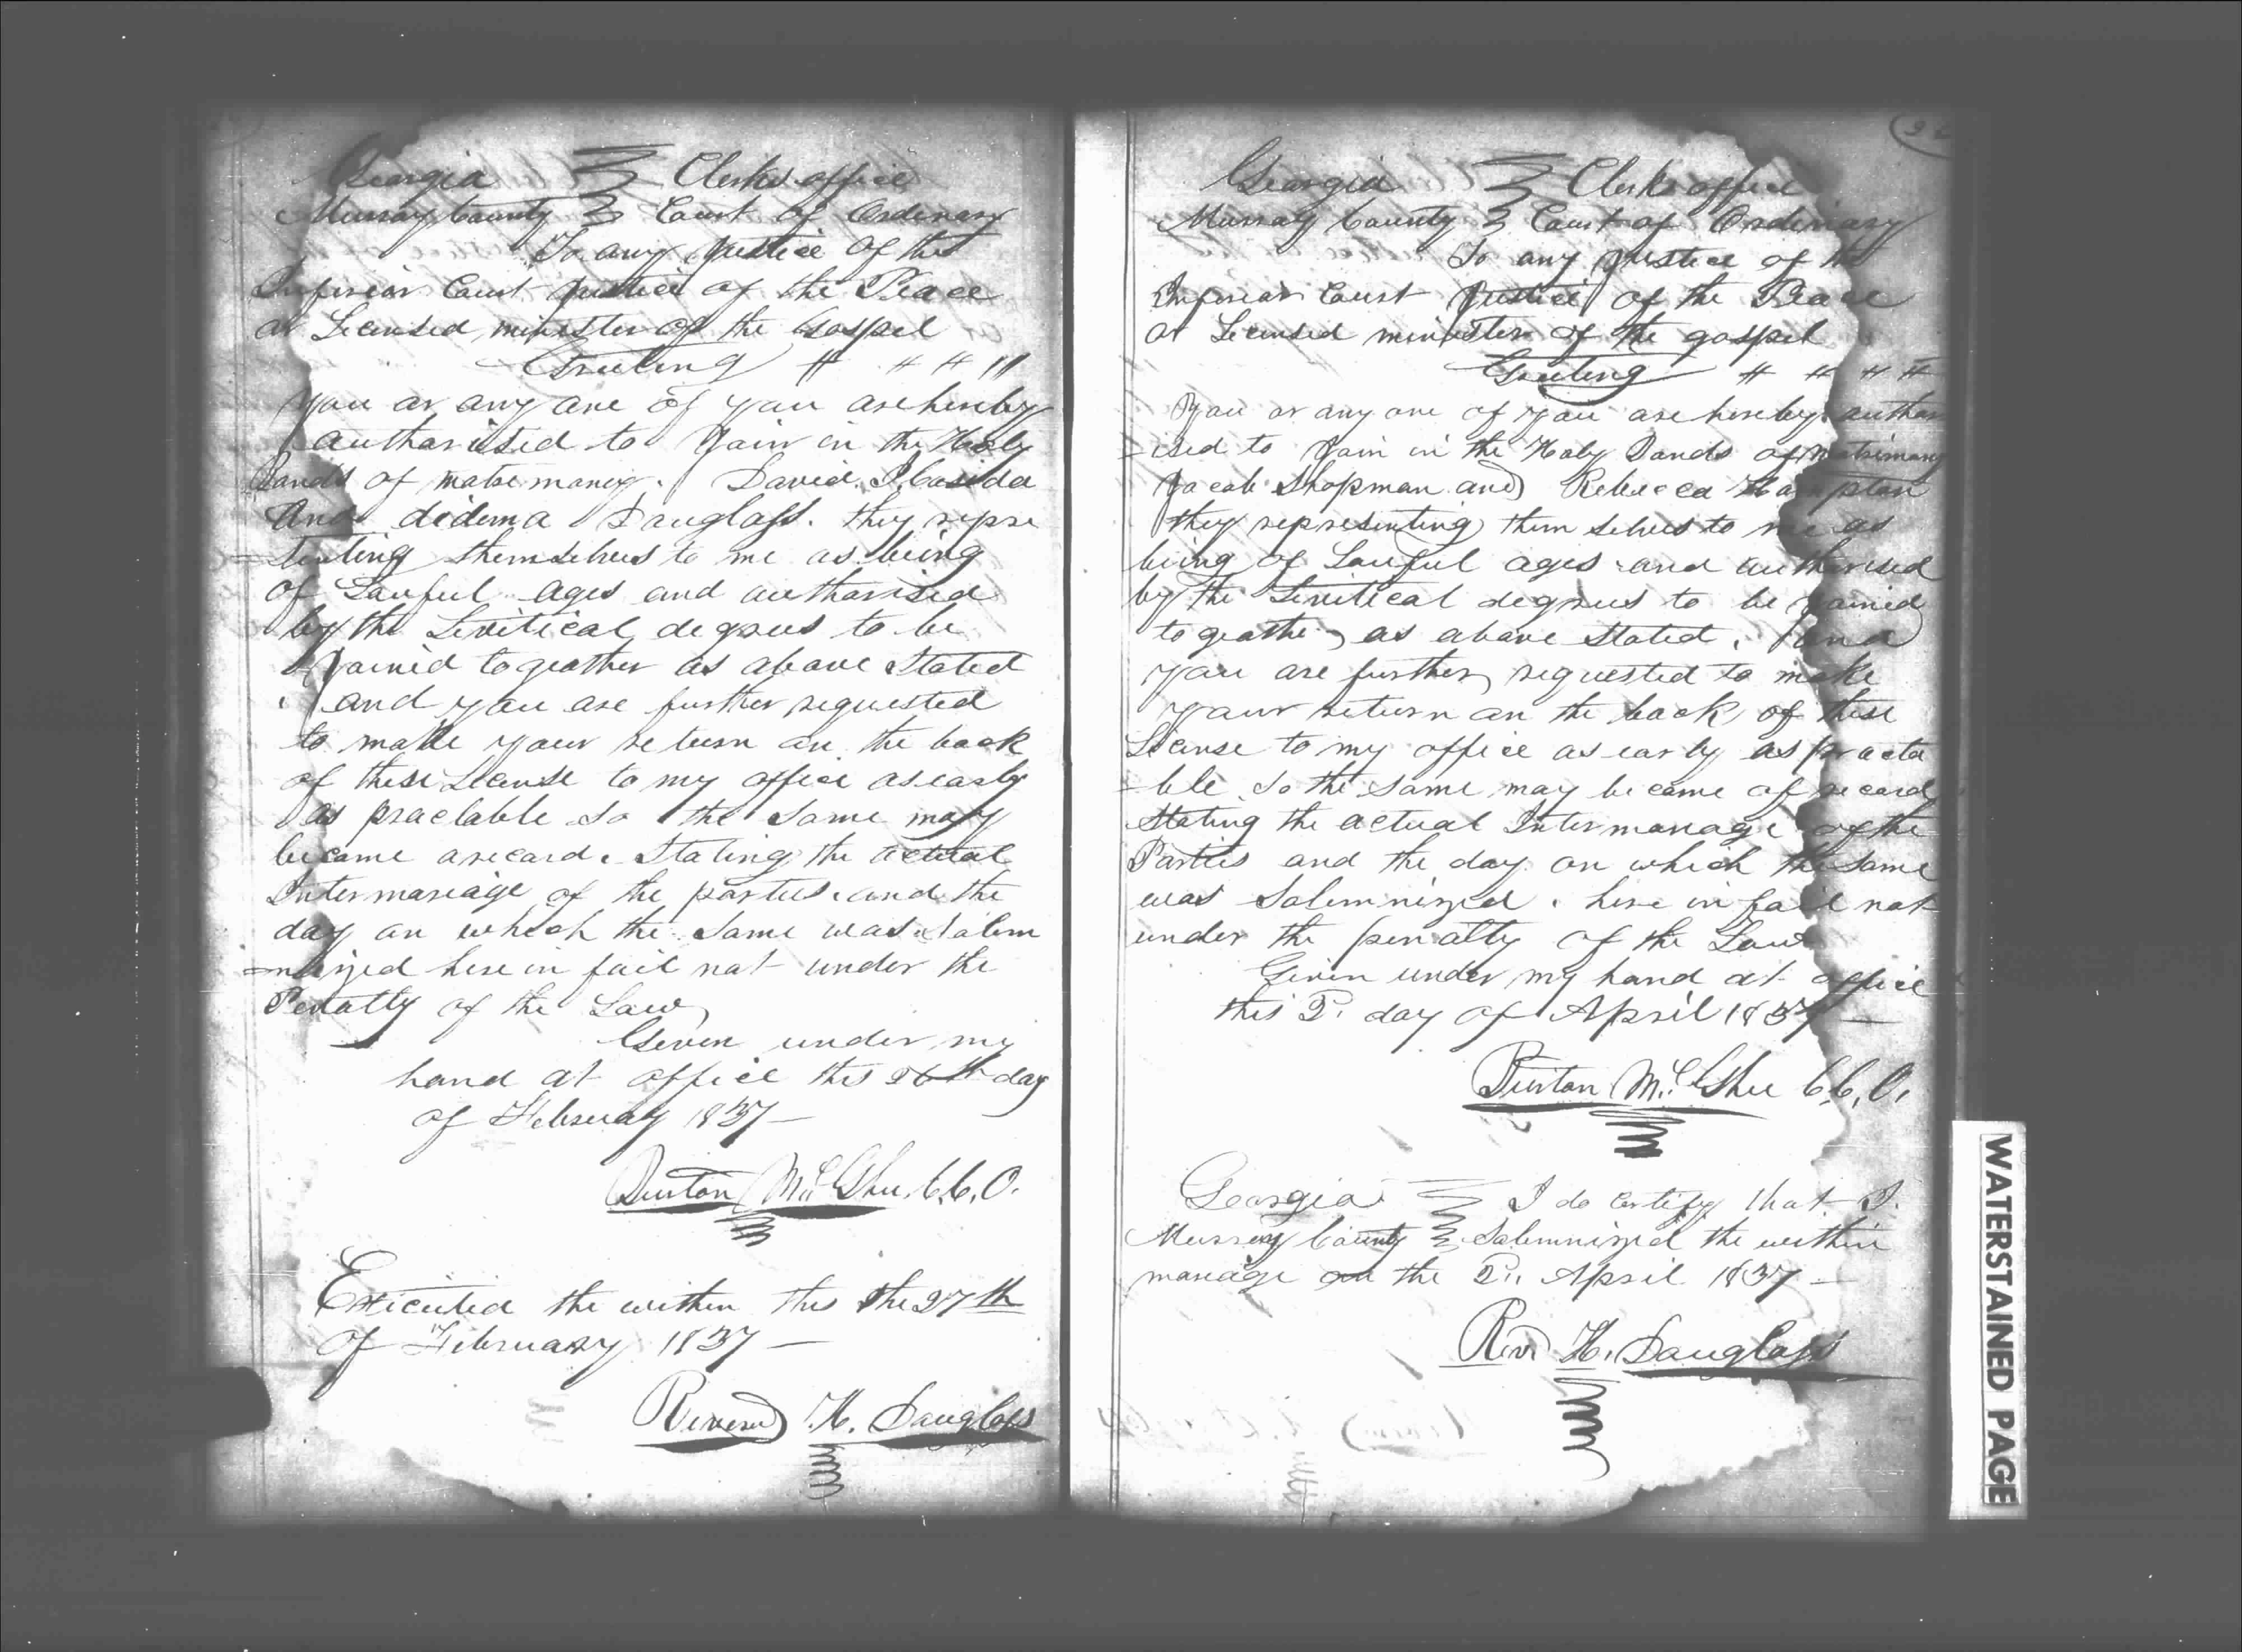 Georgia Clerks office
Murray County Court of Ordinary
To any Justice of the
Inferior Court Justice of the Peace
or Licensed minister of the Gospel
Greeting # # # "
You or any one of you are hereby
authorised to Join in the Holy
bands of matrimony. David
And didema Douglass. they repre
=senting themselves to me as being
of Lawful ages and authorised
by the Levitical degrees to be
Joined togeather as above Stated
and you are further requested
to make your return on the back
of these License to my office as early
as practable So the Same may
become a record. Stating the actual
Intermariage of the parties. and the
day on which the Same was Solem
=nized here in fail not under the
Penalty of the Law
Given under my
hand at office this 26th day
of February 1837
Burton McGhee C.C.O.
Executed the within this the 27th
of February 1837
Reverend H. Douglass
Georgia Clerks office
Murray County Court of Ordinary
To any Justice of the
Inferior Court Justice of the Peace
or Licensed minister of the gospel
Greeting # # # #
You or any one of you are hereby author
=ised to Join in the Holy Bands of matrimony
Jacob Shopman and Rebecca Hampton
they representing them selves to me as
being of Lawful ages and authorised
by the Levitical degrees to be Joined
togeather as above Stated. and
you are further requested to make
your return on the back of these
License to my office as early as practa
=ble So the Same may become of record
Stating the actual Intermariage of the
Parties and the day on which the Same
was Solemnized. here in fail not
under the penalty of the Law
Given under my hand at office
this 2. day of April 1837
Burton McGhee C.C.O.
Georgia I do certify that I.
Murray County Solemnized the within
mariage on the 2,, April 1837
Revd H. Douglass
WATERSTAINED PAGE